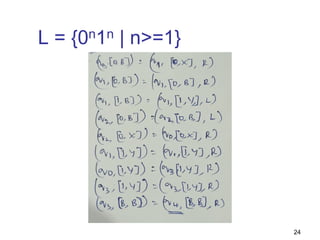 L = {0ⁿ1ⁿ | n>=1}
(q0, [0,B]) = (q1, [0,X], R)
(q1, [0,B]) = (q1, [0,B], R)
(q1, [1,B]) = (q2, [1,Y], L)
(q2, [0,B]) = (q2, [0,B], L)
(q2, [0,X]) = (q0, [0,X], R)
(q1, [1,Y]) = (q1, [1,Y], R)
(q0, [1,Y]) = (q3, [1,Y], R)
(q3, [1,Y]) = (q3, [1,Y], R)
(q3, [B,B]) = (q4, [B,B], R)
24